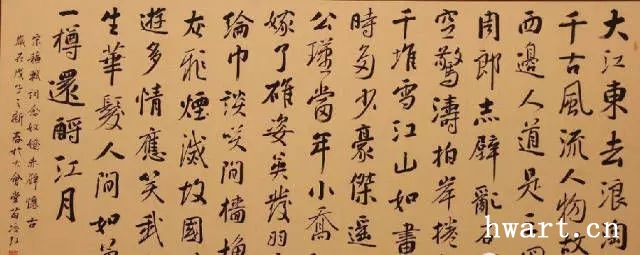 大江東去浪淘
千古風流人物故
西邊人道是三
周郎赤壁亂
空驚濤拍岸捲
千堆雪江山如畫
時多少豪傑遥
公瑾當年小喬
嫁了雄姿英發羽
綸巾談咲間檣
灰飛煙滅故國
遊多情應笑我
生華髮人間如
一樽還酹江月
宋蘇軾詞念奴嬌赤壁懷古
歲在戊子之新春於大會堂
hwart.cn